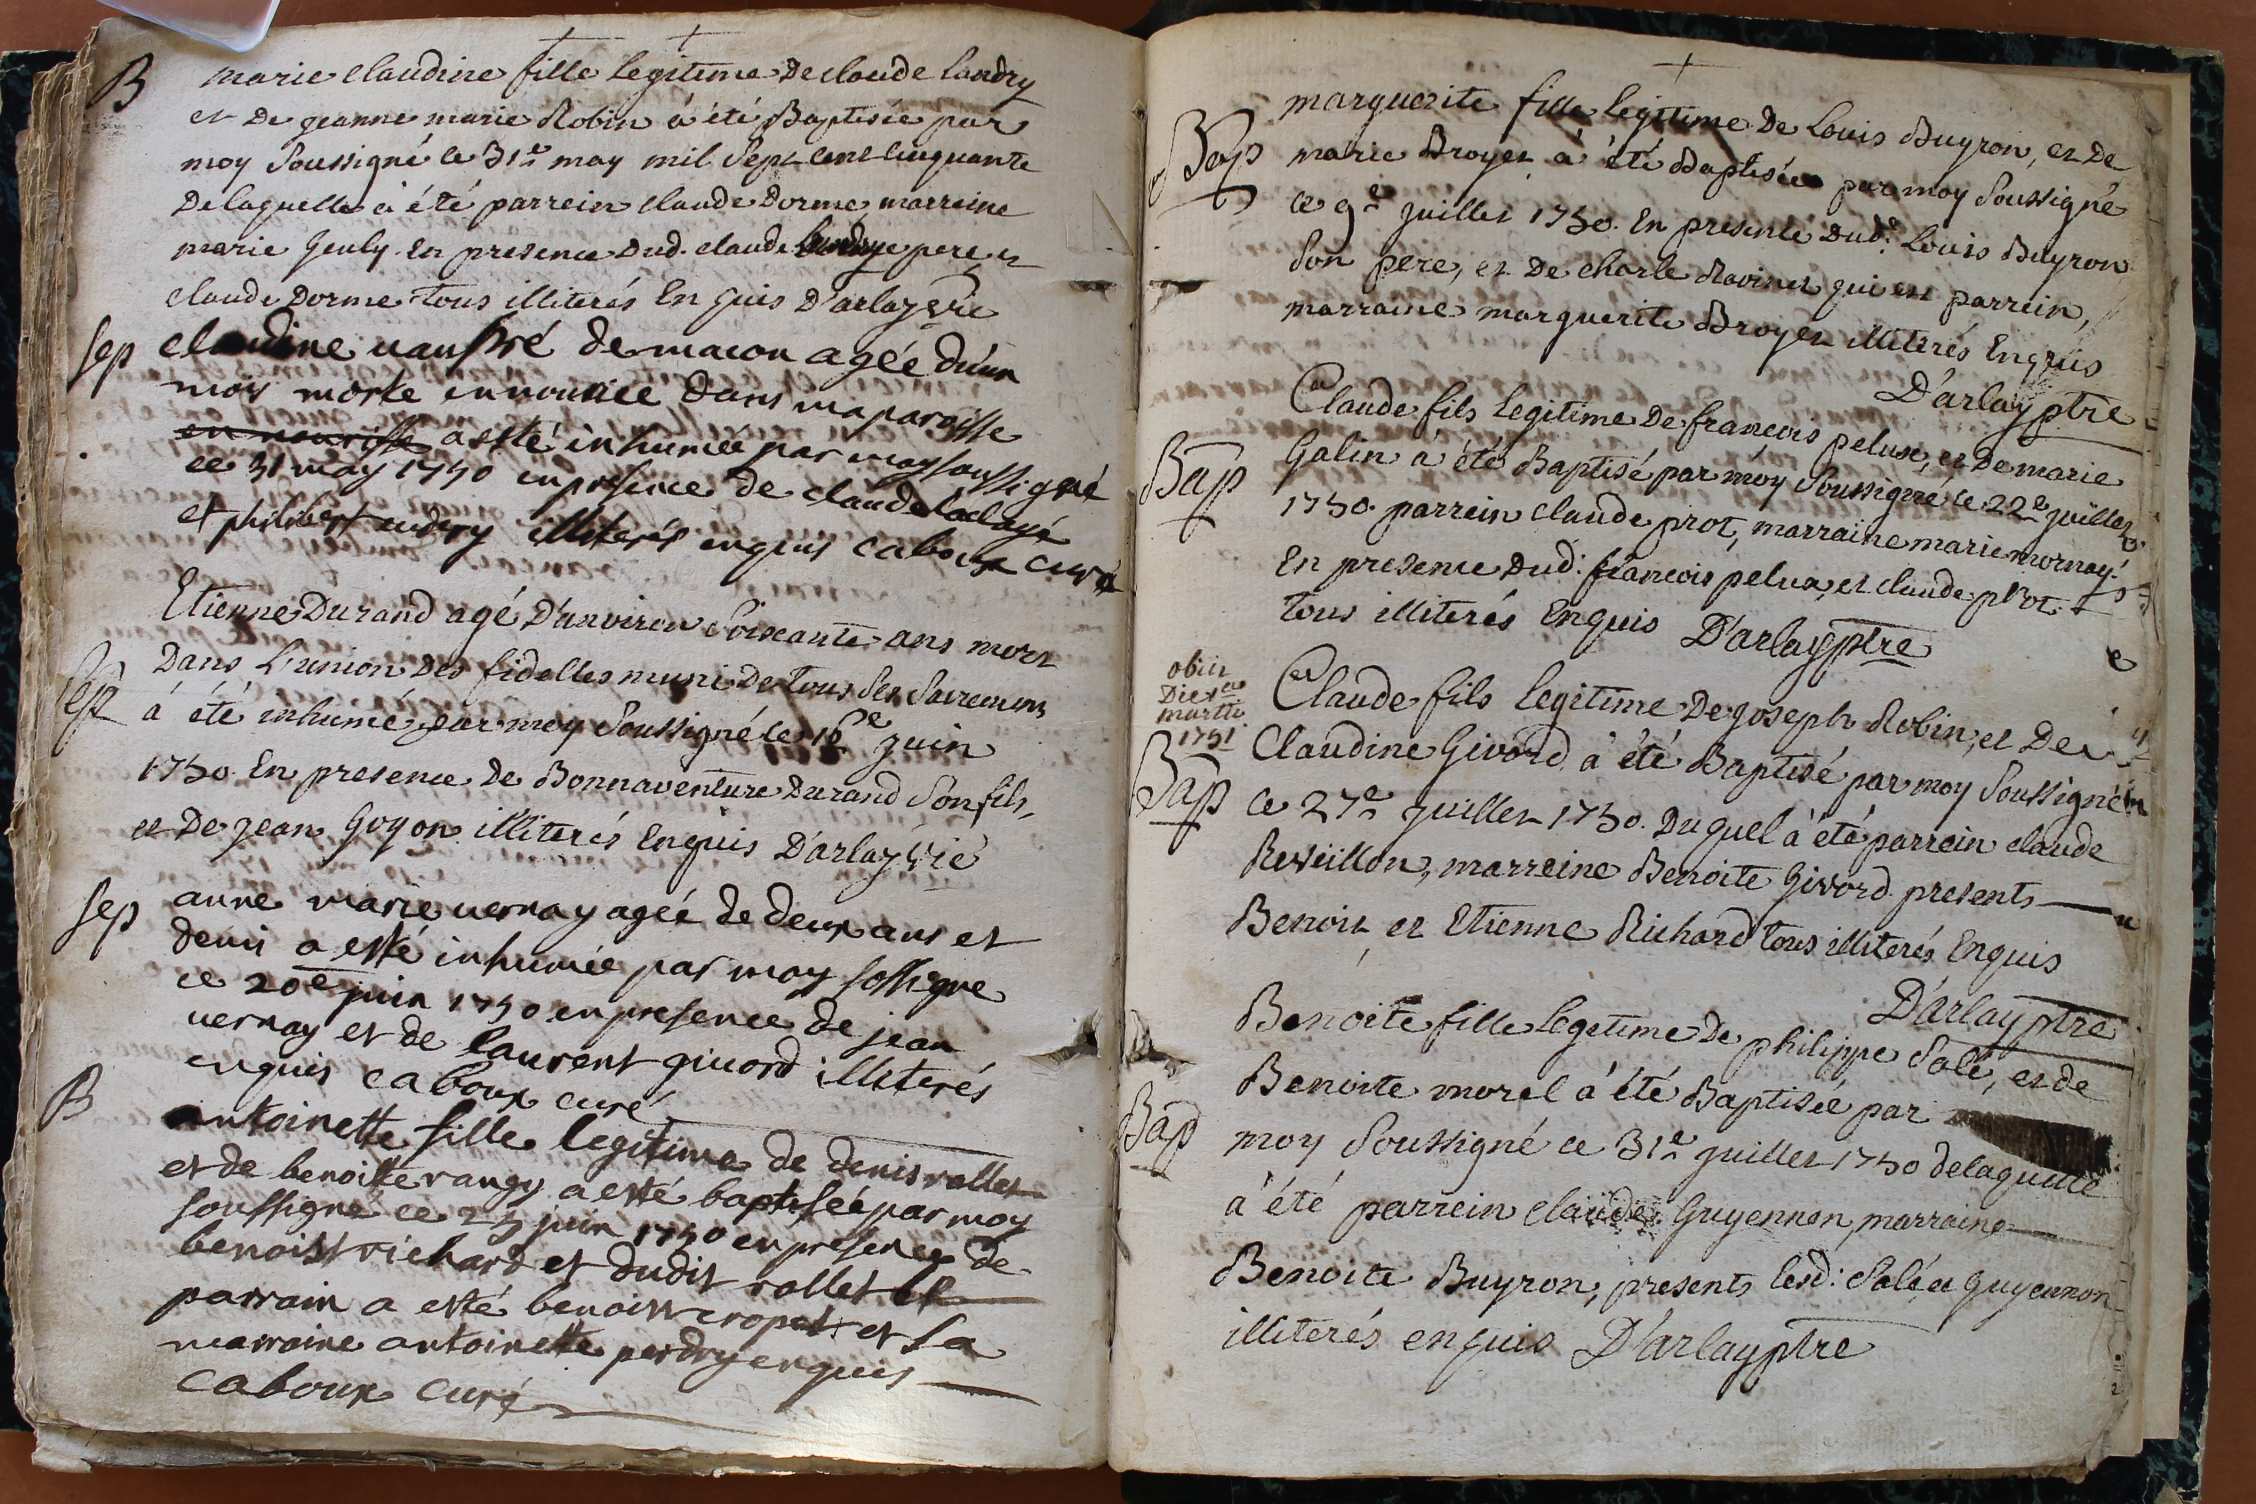 B
marie claudine fille legitime De claude landry
et De jeanne marie Robin à été Baptisée par
moy Soussigné ce 31e may mil Sept cent cinquante
De laquelle à été parrein claude Dorme marreine
marie Geuly. En presence Dud. claude pere, et
claude Dorme tous illiterés Enquis D'arlay vic
sep
claudine vaupré de macon agée d'un
mois morte en nourice dans ma paroisse
a esté inhumée par moy soussigné
ce 31 may 1750 en presence de claude
et philibert audry illiterés enquis caboux curé
Sep
Etienne Durand agé D'anviron Soixante ans mort
Dans L'union Des fidelles muni De tous Ses Sacremens
à été inhumé par moy Soussigné le 16e juin
1750. En presence de Bonnaventure Durand Son fils,
et De jean Goyon illiterés Enquis D'arlay vic
sep
anne marie vernay agée de deux ans et
demi a esté inhumée par moy sossigne
ce 20e juin 1750 en presence de jean
vernay et de laurent givord illiterés
enquis caboux curé
B
antoinette fille legitime de denis rollet
et de benoitte rangy a esté baptisée par moy
soussigne ce 25 juin 1750 en presence de
benoist richard et dudit rollet et
parrain a esté benoist cropet et la
marraine antoinette perdry enquis
caboux curé
Bap
marguerite fille legitime De Louis Buyron, et De
marie Broyer à été Baptisée par moy Soussigné
ce 9e juillet 1750. En presence Dud. Louis Buyron
Son pere, et De charle Ravinet qui est parrein,
marraine marguerite Broyer illiterés Enquis
D'arlay ptre
Bap
Claude fils legitime De francois pelux, et De marie
Galin à été Baptisé par moy Soussigné le 22e juillet
1750. parrein claude prot, marraine marie mornay.
En presence Dud: francois pelux, et claude prot
tous illiterés Enquis D'arlay ptre
obiit
Die
martii
1751
Bap
Claude fils legitime De joseph Robin, et De
Claudine Givord à été Baptisé par moy Soussigné
ce 27e juillet 1750. Duquel à été parrein claude
Reveillon, marreine Benoite Givord presents
Benoit et Etienne Richard tous illiterés Enquis
D'arlay ptre
Bap
Benoite fille legitime De philippe Salé, et de
Benoite morel à été Baptisée par
moy Soussigné ce 31e juillet 1750 de laquelle
à été parrein claude Guyennon, marraine
Benoite Buyron, presents lesd: Salé, et Guyennon
illiterés enquis D'arlay ptre